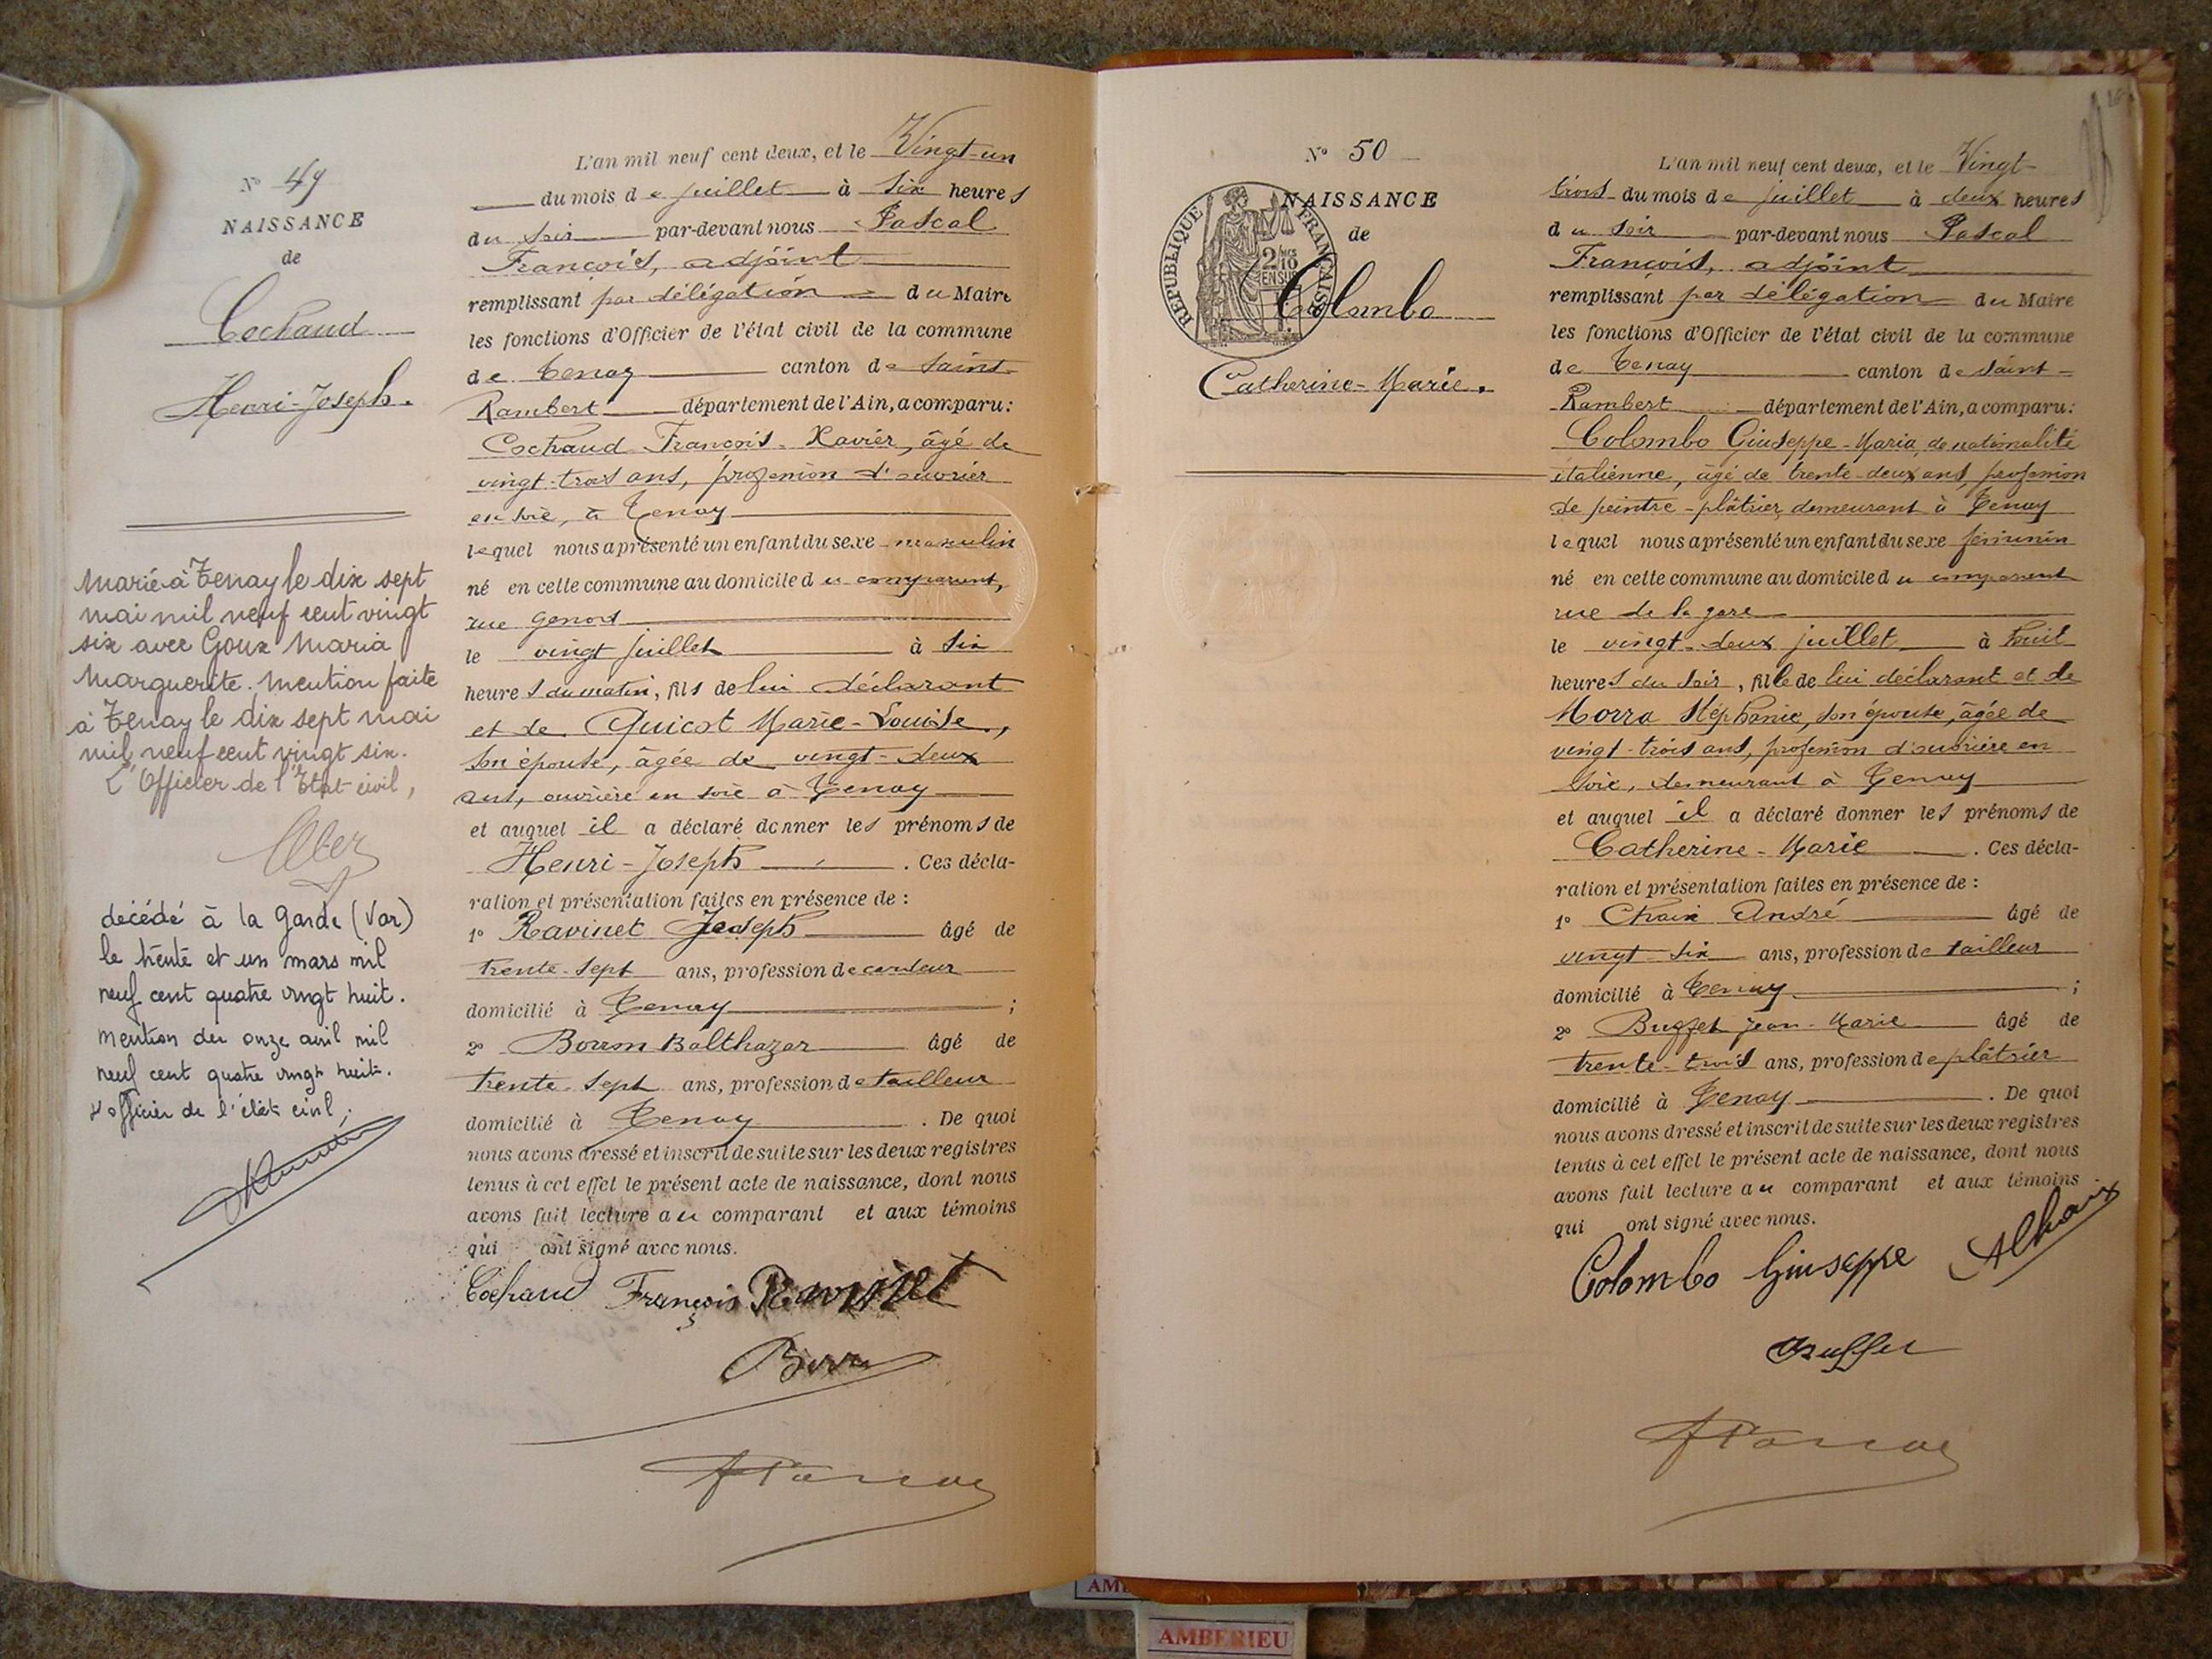 N° 49
NAISSANCE
de
Cochaud
Henri-Joseph.
marié à Tenay le dix sept
mai mil neuf cent vingt
six avec Goux Maria
Marguerite. Mention faite
à Tenay le dix sept mai
mil neuf cent vingt six.
L'Officier de l'Etat-civil,
décédé à la Garde (Var)
le trente et un mars mil
neuf cent quatre vingt huit.
mention du onze avril mil
neuf cent quatre vingt huit.
L'officier de l'état civil,
L'an mil neuf cent deux, et le Vingt-un
du mois de juillet à six heures
du soir par-devant nous Pascal
François, adjoint
remplissant par délégation du Maire
les fonctions d'Officier de l'état civil de la commune
de Tenay canton de Saint-
Rambert département de l'Ain, a comparu:
Cochaud François-Xavier, âgé de
vingt-trois ans, profession d'ouvrier
en soie, à Tenay
lequel nous a présenté un enfant du sexe masculin
né en cette commune au domicile du comparant,
rue Genod
le vingt juillet à six
heures du matin, fils de lui déclarant
et de Quicot Marie-Louise,
son épouse, âgée de vingt-deux
ans, ouvrière en soie à Tenay
et auquel il a déclaré donner les prénoms de
Henri-Joseph. Ces décla-
ration et présentation faites en présence de :
1° Ravinet Joseph âgé de
trente-sept ans, profession de cardeur
domicilié à Tenay ;
2° Balthazar âgé de
trente-sept ans, profession de tailleur
domicilié à Tenay. De quoi
nous avons dressé et inscrit de suite sur les deux registres
tenus à cet effet le présent acte de naissance, dont nous
avons fait lecture au comparant et aux témoins
qui ont signé avec nous.
Cochaud François Ravinet
N° 50
NAISSANCE
de
REPUBLIQUE FRANÇAISE
Colombo
Catherine-Marie.
L'an mil neuf cent deux, et le Vingt-
trois du mois de juillet à deux heures
du soir par-devant nous Pascal
François, adjoint
remplissant par délégation du Maire
les fonctions d'Officier de l'état civil de la commune
de Tenay canton de Saint-
Rambert département de l'Ain, a comparu:
Colombo Giuseppe-Maria, de nationalité
italienne, âgé de trente-deux ans, profession
de peintre-plâtrier, demeurant à Tenay
lequel nous a présenté un enfant du sexe féminin
né en cette commune au domicile du comparant
rue de la gare
le vingt-deux juillet à huit
heures du soir, fille de lui déclarant et de
Morra Stéphanie, son épouse, âgée de
vingt-trois ans, profession d'ouvrière en
soie, demeurant à Tenay
et auquel il a déclaré donner les prénoms de
Catherine-Marie. Ces décla-
ration et présentation faites en présence de :
1° Chaix André âgé de
vingt-six ans, profession de tailleur
domicilié à Tenay ;
2° Buffet Jean-Marie âgé de
trente-trois ans, profession de plâtrier
domicilié à Tenay. De quoi
nous avons dressé et inscrit de suite sur les deux registres
tenus à cet effet le présent acte de naissance, dont nous
avons fait lecture au comparant et aux témoins
qui ont signé avec nous.
Colombo Giuseppe AChaix
Buffet
AMBERIEU